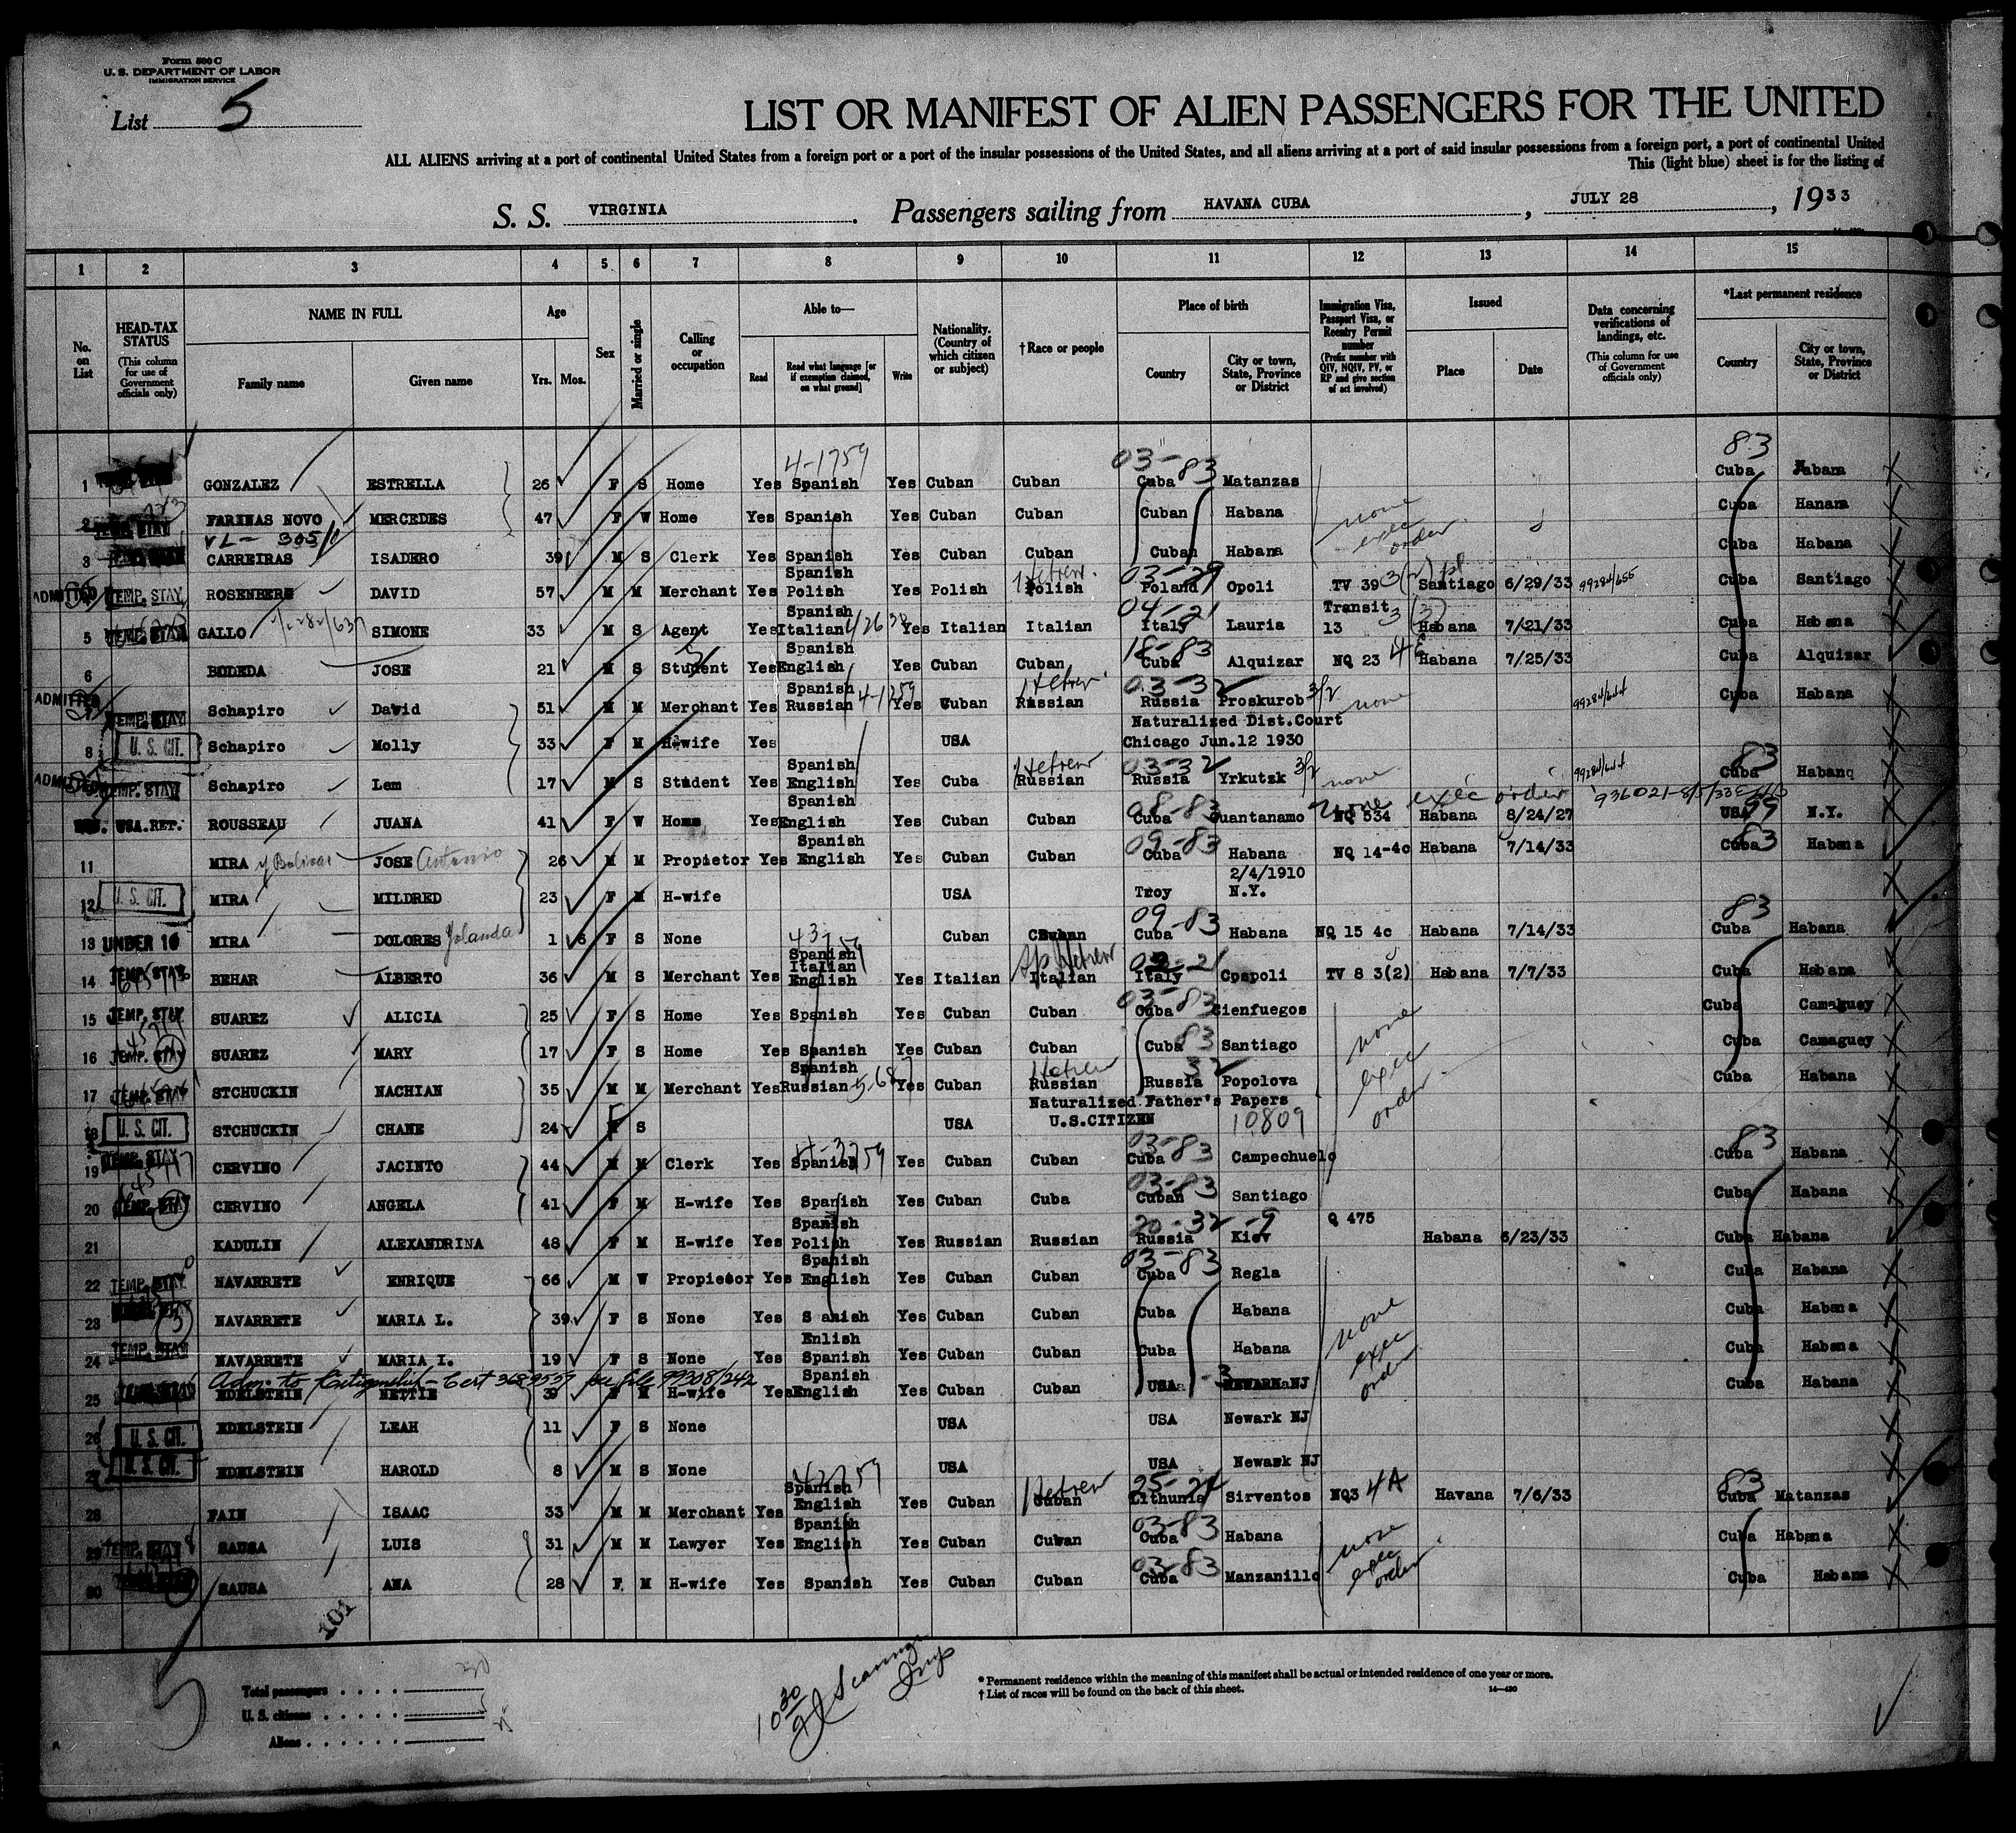 Form 500 C
U. S. DEPARTMENT OF LABOR
IMMIGRATION SERVICE
List 5
LIST OR MANIFEST OF ALIEN PASSENGERS FOR THE UNITED
ALL ALIENS arriving at a port of continental United States from a foreign port or a port of the insular possessions of the United States, and all aliens arriving at a port of said insular possessions from a foreign port, a port of continental United
This (light blue) sheet is for the listing of
S. S. VIRGINIA. Passengers sailing from HAVANA CUBA, JULY 28, 1933
1 2 3 4 5 6 7 8 9 10 11 12 13 14 15
No. on List
HEAD-TAX STATUS (This column for use of Government officials only)
NAME IN FULL Family name Given name
Age Yrs. Mos.
Sex
Married or single
Calling or occupation
Able to— Read Read what language [or if exemption claimed, on what ground] Write
Nationality. (Country of which citizen or subject)
†Race or people
Place of birth Country City or town, State, Province or District
Immigration Visa, Passport Visa, or Reentry Permit number (Prefix number with QIV, NQIV, PV, or RP and give section of act involved)
Issued Place Date
Data concerning verifications of landings, etc. (This column for use of Government officials only)
*Last permanent residence Country City or town, State, Province or District
4-1759 03-83 83
1 GONZALEZ ESTRELLA 26 F S Home Yes Spanish Yes Cuban Cuban Cuba Matanzas Cuba Habana
2 TEMP. STAY FARINAS NOVO MERCEDES 47 F W Home Yes Spanish Yes Cuban Cuban Cuban Habana none exec order Cuba Hanana
VL- 305/
3 CARREIRAS ISADERO 39 M S Clerk Yes Spanish Yes Cuban Cuban Cuban Habana Cuba Habana
ADMITTED 4 TEMP. STAY ROSENBERG DAVID 57 M M Merchant Yes Spanish Polish Yes Polish Hebrew Polish 03-29 Poland Opoli TV 39 3(2) Santiago 6/29/33 99284/655 Cuba Santiago
5 TEMP. STAY GALLO SIMONE 33 M S Agent Yes Spanish Italian Yes Italian Italian 04-21 Italy Lauria Transit 13 3(3) Habana 7/21/33 Cuba Habana
6 BODEDA JOSE 21 M S Student Yes Spanish English Yes Cuban Cuban 18-83 Cuba Alquizar NQ 23 4E Habana 7/25/33 Cuba Alquizar
ADMITTED TEMP. STAY Schapiro David 51 M M Merchant Yes Spanish Russian 4-1259 Yes Cuban Hebrew Russian 03-32 Russia Proskurob 3/2 none 99284/644 Cuba Habana
8 U. S. CIT. Schapiro Molly 33 F M H-wife Yes USA Naturalized Dist.Court Chicago Jun.12 1930
ADMITTED TEMP. STAY Schapiro Lem 17 M S Student Yes Spanish English Yes Cuba Hebrew Russian 03-32 Russia Yrkutzk 3/2 none 99284/644 83 Cuba Habanq
USA.RET. ROUSSEAU JUANA 41 F W Home Yes Spanish English Yes Cuban Cuban 08-83 Cuba Guantanamo none exec order NQ 534 Habana 8/24/27 USA 99 N.Y.
11 MIRA y Bolivar JOSE Antonio 26 M M Propietor Yes Spanish English Yes Cuban Cuban 09-83 Cuba Habana NQ 14-4c Habana 7/14/33 Cuba 83 Habana
12 U. S. CIT. MIRA MILDRED 23 F M H-wife USA Troy 2/4/1910 N.Y.
13 UNDER 16 MIRA DOLORES Yolanda 1 6 F S None Cuban Cuban 09-83 Cuba Habana NQ 15 4c Habana 7/14/33 83 Cuba Habana
14 TEMP. STAY BEHAR ALBERTO 36 M S Merchant Yes Spanish Italian English Yes Italian Hebrew Italian Italy Cpapoli TV 8 3(2) Habana 7/7/33 Cuba Habana
15 TEMP. STAY SUAREZ ALICIA 25 F S Home Yes Spanish Yes Cuban Cuban 03-83 Cuba Cienfuegos Cuba Camaguey
16 TEMP. STAY SUAREZ MARY 17 F S Home Yes Spanish Yes Cuban Cuban Cuba 83 Santiago none exec order Cuba Camaguey
17 TEMP. STAY STCHUCKIN NACHIAN 35 M M Merchant Yes Spanish Russian 5-687 Yes Cuban Hebrew Russian Russia 32 Popolova Cuba Habana
18 U. S. CIT. STCHUCKIN CHANE 24 F S USA Naturalized Father's Papers U.S.CITIZEN 10809
19 TEMP. STAY CERVINO JACINTO 44 M M Clerk Yes Spanish Yes Cuban Cuban 03-83 Cuba Campechuelo 83 Cuba Habana
20 TEMP. STAY CERVINO ANGELA 41 F M H-wife Yes Spanish Yes Cuban Cuba 03-83 Cuban Santiago Cuba Habana
21 KADULIN ALEXANDRINA 48 F M H-wife Yes Spanish Polish Yes Russian Russian 20-32 Russia Kiev Q 475 Habana 6/23/33 Cuba Habana
22 TEMP. STAY NAVARRETE ENRIQUE 66 M W Propietor Yes Spanish English Yes Cuban Cuban 03-83 Cuba Regla Cuba Habana
23 NAVARRETE MARIA L. 39 F S None Yes S anish Yes Cuban Cuban Cuba Habana none exec order Cuba Habana
24 TEMP. STAY NAVARRETE MARIA I. 19 F S None Yes Enlish Spanish Yes Cuban Cuban Cuba Habana Cuba Habana
Adm. to Citizenship - Cert 3689557 see file 99308/242
25 EDELSTEIN NETTIE 39 M H-wife Yes Spanish English Yes Cuban Cuban USA NEWARK NJ Cuba Habana
26 U. S. CIT. EDELSTEIN LEAH 11 F S None USA USA Newark NJ
27 U. S. CIT. EDELSTEIN HAROLD 8 M S None USA USA Newark NJ
28 FAIN ISAAC 33 M M Merchant Yes Spanish English Yes Cuban Hebrew Cuban Lithunia Sirventos NQ3 4A Havana 7/6/33 83 Cuba Matanzas
29 TEMP. STAY SAUSA LUIS 31 M M Lawyer Yes Spanish English Yes Cuban Cuban 03-83 Cuba Habana none exec order Cuba Habana
30 SAUSA ANA 28 F M H-wife Yes Spanish Yes Cuban Cuban 03-83 Cuba Manzanillo Cuba Habana
101
Total passengers 30
U. S. citizens 5
Aliens
10 30
* Permanent residence within the meaning of this manifest shall be actual or intended residence of one year or more.
† List of races will be found on the back of this sheet.
14—430